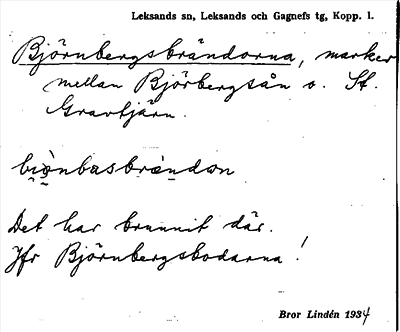 Leksands sn, Leksands och Gagnefs tg, Kopp. l.
Björnbergsbrändorna, marker
mellan Björbergsån o. St.
Gravtjärn.
Det har brunnit där.
Jfr Björnbergsbodarna!
Bror Lindén 1934